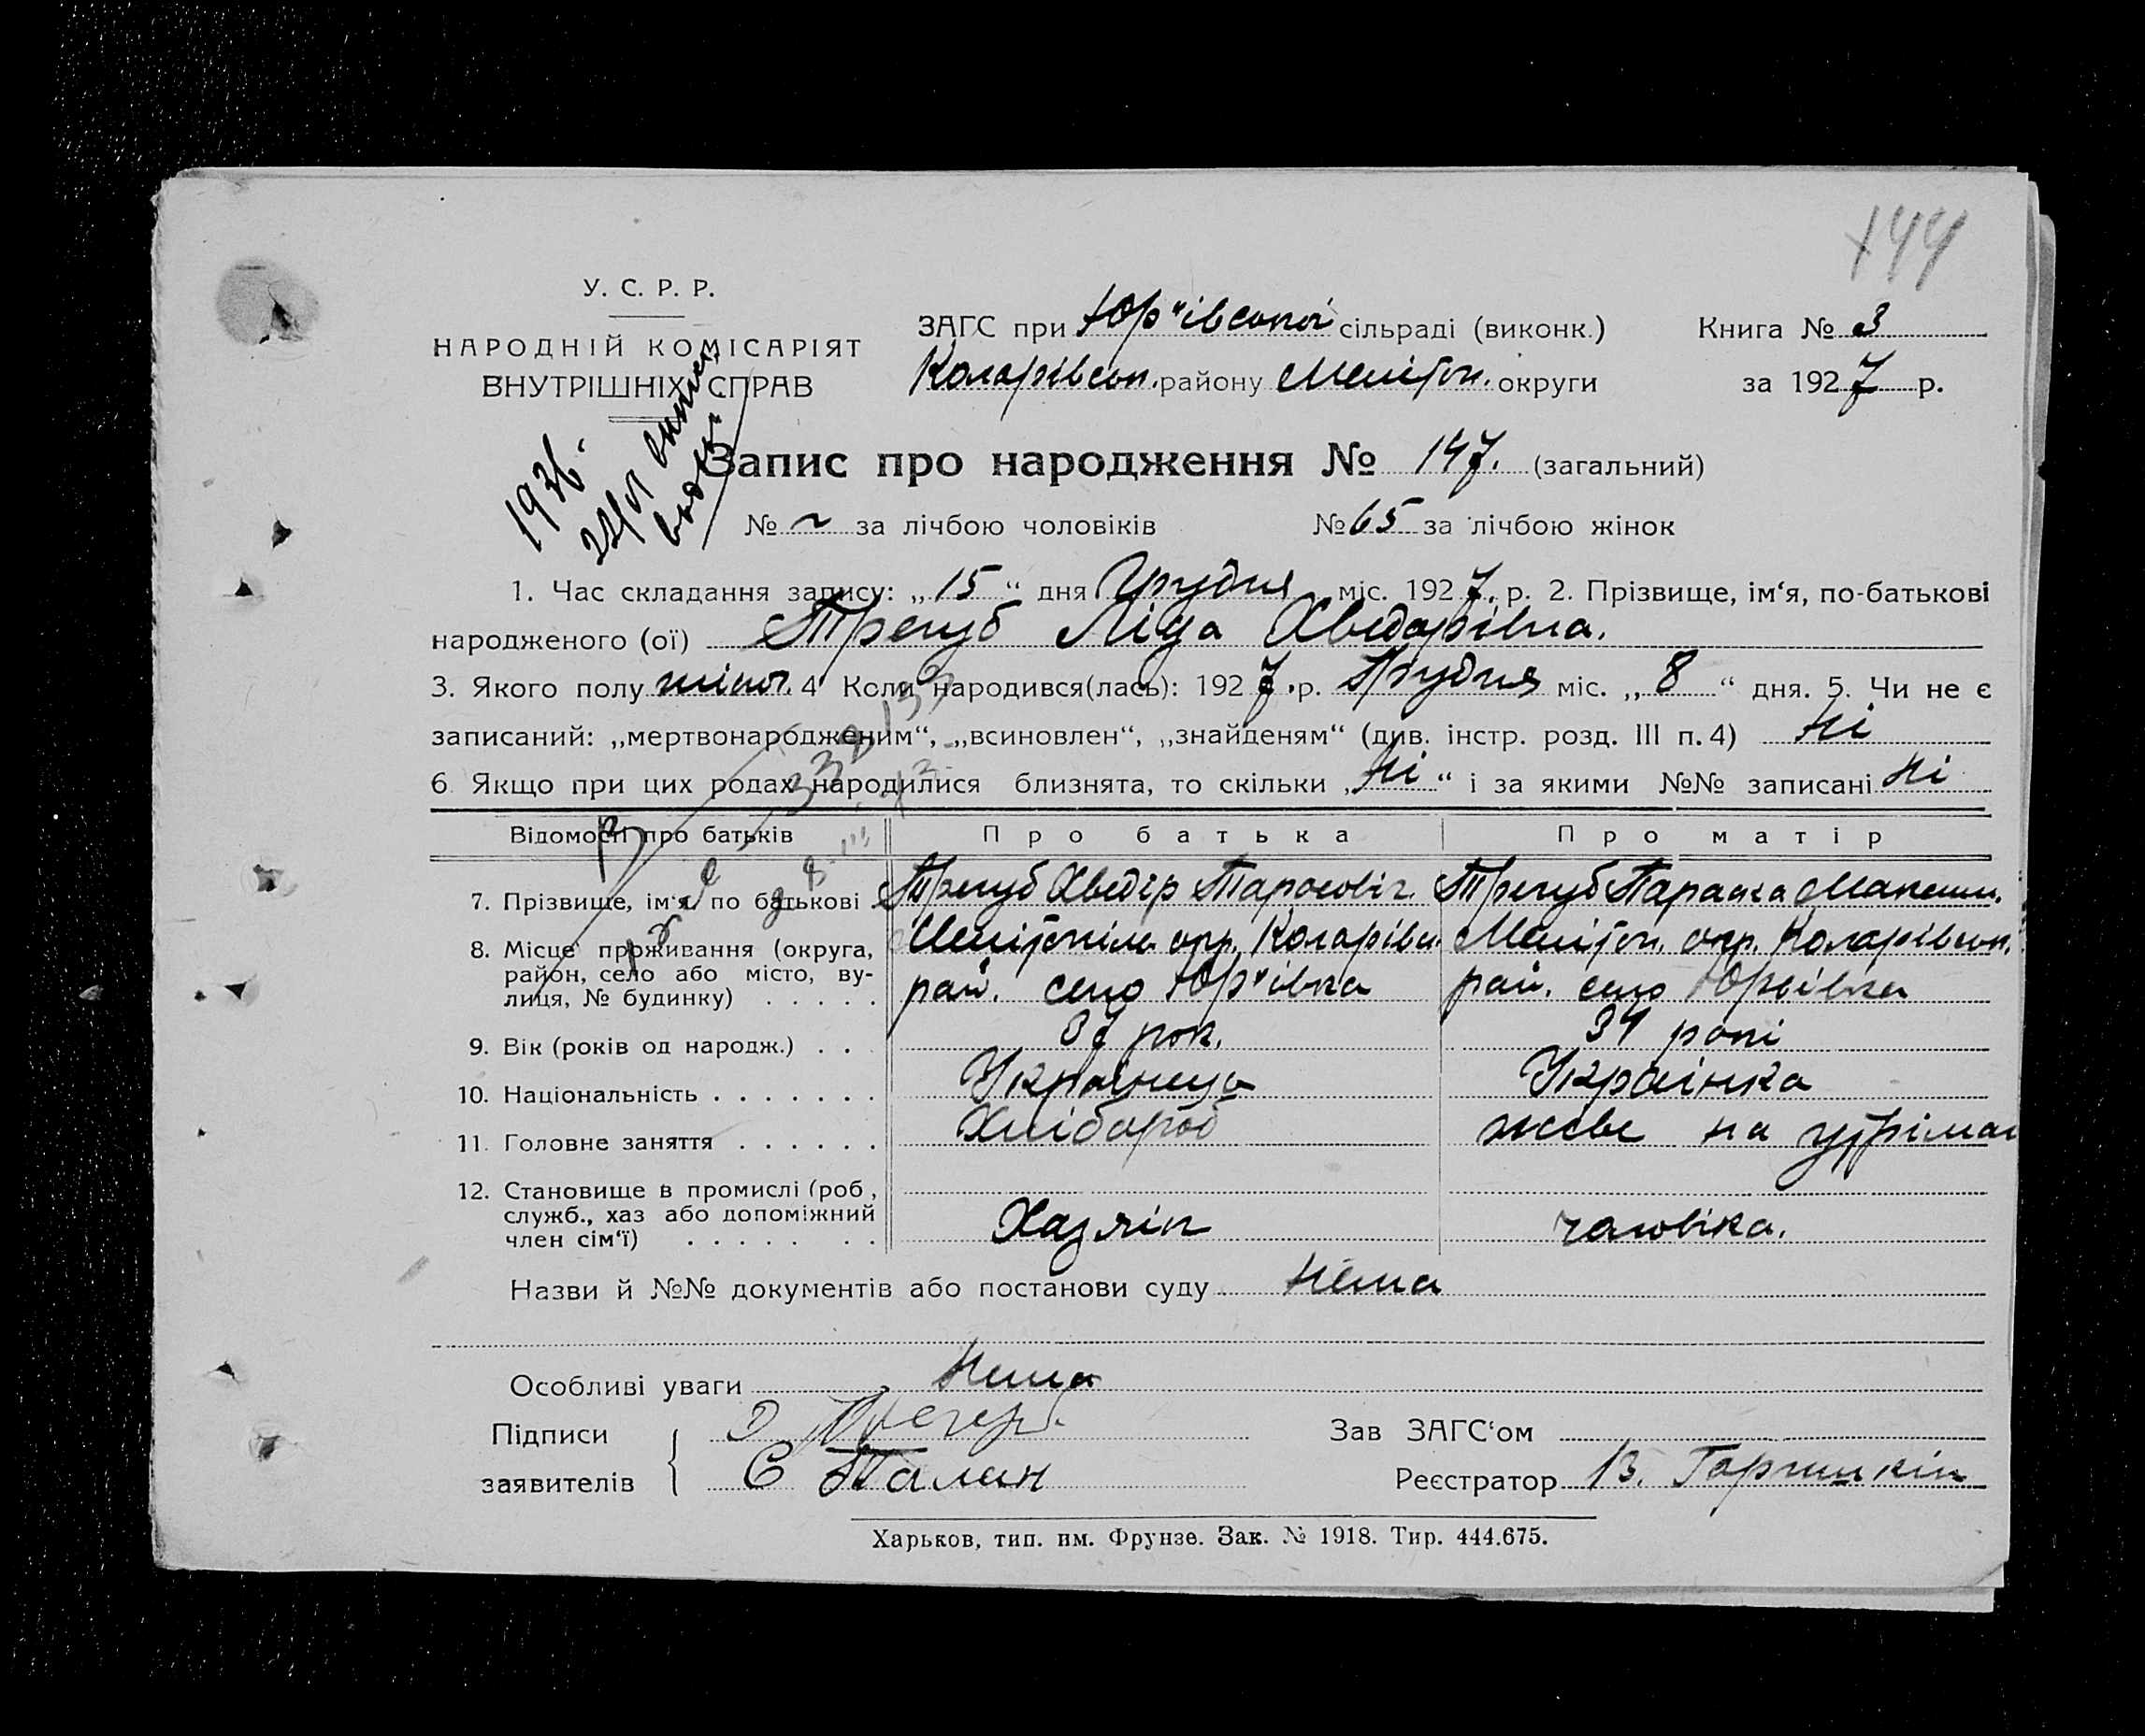 144
У. С. Р. Р.
НАРОДНІЙ КОМІСАРІЯТ
ВНУТРІШНІХ СПРАВ
ЗАГС при Юр'івській сільраді (виконк.) Книга № 3
Коларівськ. району Мелітоп. округи за 1927 р.
1936.
Запис про народження № 147. (загальний)
№ ~ за лічбою чоловіків № 65 за лічбою жінок
1. Час складання запису: „15“ дня Грудня міс. 1927 р. 2. Прізвище, ім‘я, по-батькові
народженого (ої) Трегуб Ліда Хведорівна.
3. Якого полу жіноч. 4 Коли народився(лась): 1927 р. Грудня міс. „8“ дня. 5. Чи не є
записаний: „мертвонародженим“, „всиновлен“, „знайденям“ (див. інстр. розд. III п. 4) Ні
6. Якщо при цих родах народилися близнята, то скільки „Ні“ і за якими №№ записані Ні
Відомості про батьків Про батька Про матір
7. Прізвище, ім‘я, по батькові Трегуб Хведір Таросовіч Трегуб Параска Максим.
8. Місце проживання (округа, Мелітопіль окр. Коларівськ. Мелітоп. окр. Коларівськ.
район, село або місто, ву-
лиця, № будинку) . . . . . рай. село Юр'івка рай. село Юрьівка
9. Вік (років од народж.) . . 37 рок. 34 рокі
10. Національність . . . . . . . Українець Українка
11. Головне заняття . . . . . . Хлібороб живе на утріман
12. Становище в промислі (роб.,
служб., хаз або допоміжний
член сім‘ї) . . . . . . . Хазяін чоловіка.
Назви й №№ документів або постанови суду Нема
Особливі уваги Нема
Підписи Трегуб Зав ЗАГС‘ом
заявителів С Талан Реєстратор В. Горшкін
Харьков, тип. им. Фрунзе. Зак. № 1918. Тир. 444.675.